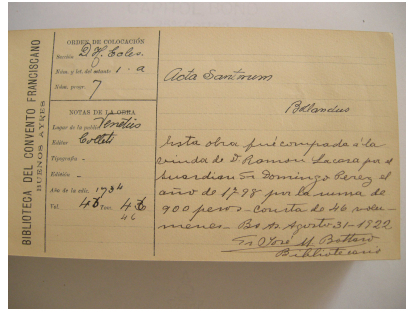 BIBLIOTECA DEL CONVENTO FRANCISCANO
BUENOS AYRES
ORDEN DE COLOCACIÓN
Sección D. H. Coles.
Núm. y let. del estante 1 - a
Núm. progr. 7
NOTAS DE LA OBRA
Lugar de la public. Venetiis
Editor Colleti
Tipografía -
Edición -
Año de la edic. 1734
Vol. 46 Tom. 46
46
Acta Sanctorum
Bollandus
Esta obra fué comprada á la
viuda de D. Ramon Lacara por el
Guardian Fr Domingo Perez el
año de 1798 por la suma de
900 pesos - Consta de 46 volu-
menes - Bs As Agosto 31-1922
Fr José M Bottaro
Bibliotecario